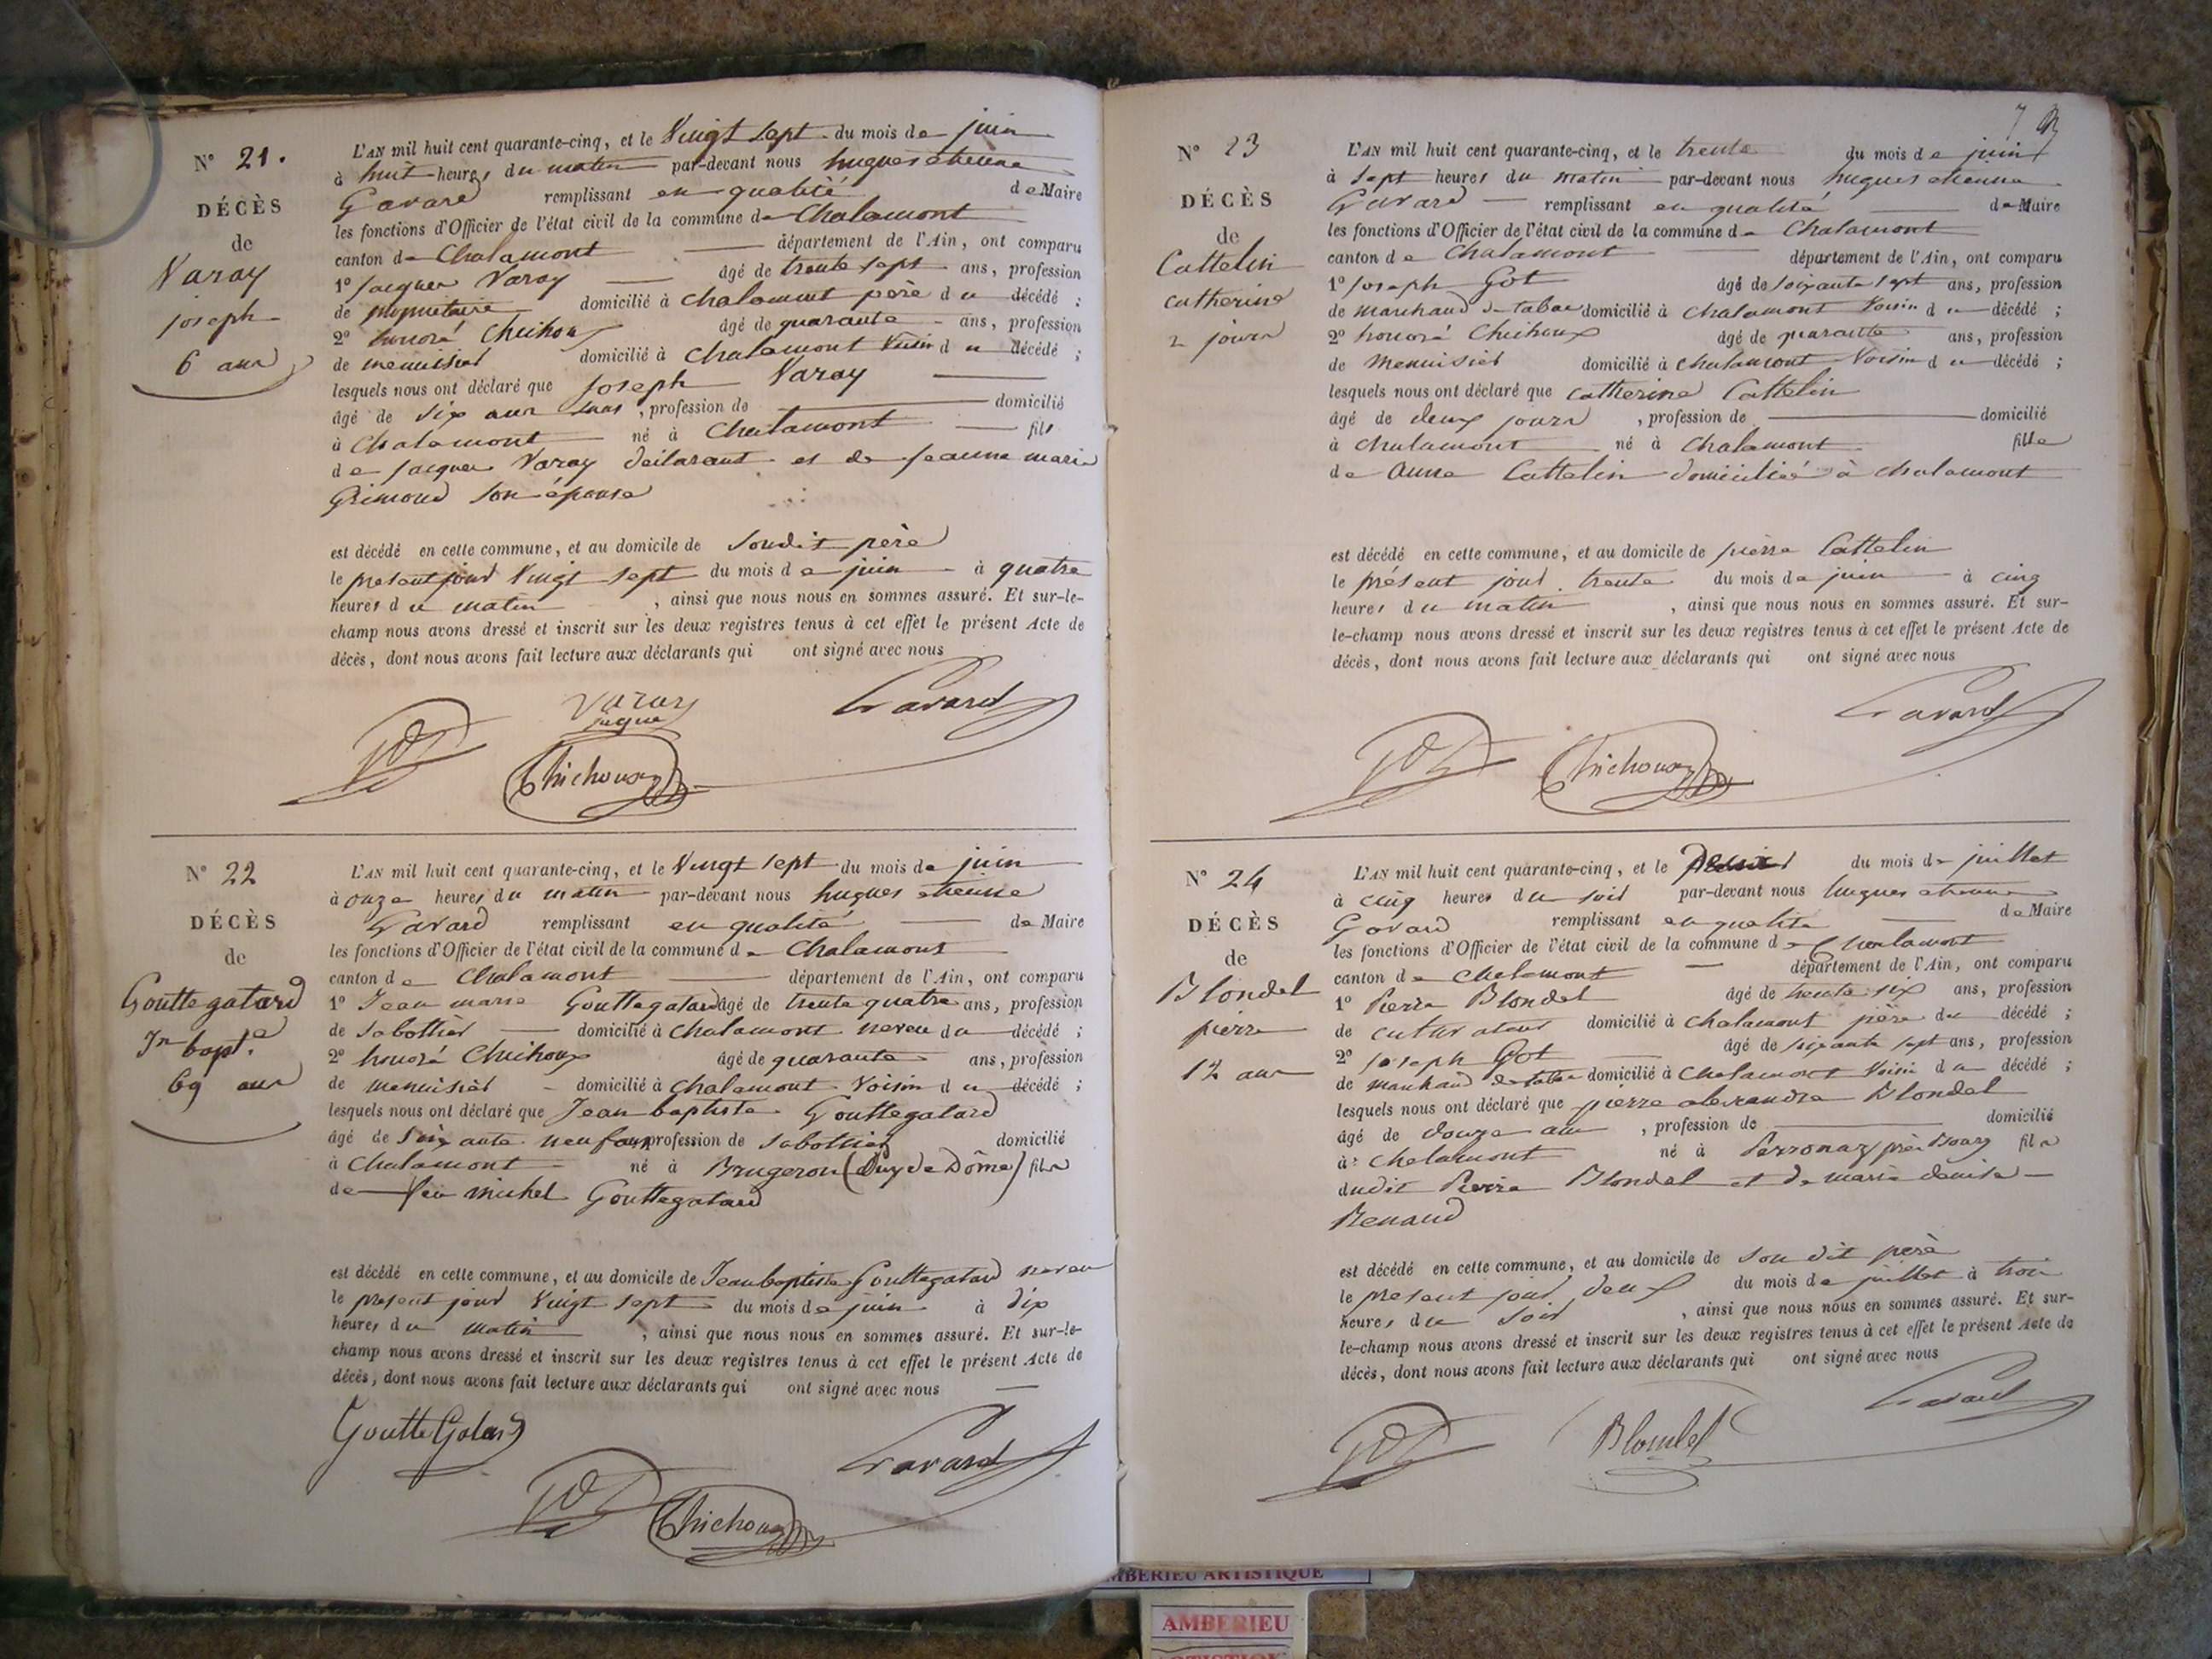 N° 21.
DÉCÈS
de
Varay
joseph
6 ans
L'AN mil huit cent quarante-cinq, et le Vingt sept du mois de juin
à huit heures du matin par-devant nous hugues etienne
Gavard remplissant en qualité de Maire
les fonctions d'Officier de l'état civil de la commune de Chalamont
canton de Chalamont département de l'Ain, ont comparu
1° Jacques Varay âgé de trente sept ans, profession
de propriétaire domicilié à Chalamont père du décédé ;
2° honoré Chichoux âgé de quarante ans, profession
de menuisier domicilié à Chalamont Voisin du décédé ;
lesquels nous ont déclaré que Joseph Varay
âgé de six ans , profession de domicilié
à Chalamont né à Chalamont fils
de Jacques Varay déclarant et de Jeanne marie
Grimoud son épouse
est décédé en cette commune, et au domicile de son dit père
le présent jour Vingt sept du mois de juin à quatre
heures du matin , ainsi que nous nous en sommes assuré. Et sur-le-
champ nous avons dressé et inscrit sur les deux registres tenus à cet effet le présent Acte de
décès, dont nous avons fait lecture aux déclarants qui ont signé avec nous
Varay Gavard
Jaque
Chichoux
N° 22
DÉCÈS
de
Gouttegatard
Jn bapte
69 ans
L'AN mil huit cent quarante-cinq, et le Vingt sept du mois de juin
à onze heures du matin par-devant nous hugues etienne
Gavard remplissant en qualité de Maire
les fonctions d'Officier de l'état civil de la commune de Chalamont
canton de Chalamont département de l'Ain, ont comparu
1° Jean marie Gouttegatard âgé de trente quatre ans, profession
de Sabottier domicilié à Chalamont neveu du décédé ;
2° honoré Chichoux âgé de quarante ans, profession
de menuisier domicilié à Chalamont Voisin du décédé ;
lesquels nous ont déclaré que Jean baptiste Gouttegatard
âgé de soixante neuf ans profession de Sabottier domicilié
à Chalamont né à Brugeron (Puy de Dôme) fils
de feu michel Gouttegatard
est décédé en cette commune, et au domicile de Jean baptiste Gouttegatard neveu
le présent jour Vingt sept du mois de juin à dix
heures du matin , ainsi que nous nous en sommes assuré. Et sur-le-
champ nous avons dressé et inscrit sur les deux registres tenus à cet effet le présent Acte de
décès, dont nous avons fait lecture aux déclarants qui ont signé avec nous
GoutteGatard
Gavard
Chichoux
N° 23
DÉCÈS
de
Cattelin
catherine
2 jours
L'AN mil huit cent quarante-cinq, et le trente du mois de juin
à sept heures du matin par-devant nous hugues etienne
Gavard remplissant en qualité de Maire
les fonctions d'Officier de l'état civil de la commune de Chalamont
canton de Chalamont département de l'Ain, ont comparu
1° Joseph Got âgé de soixante sept ans, profession
de marchand de tabac domicilié à Chalamont Voisin du décédé ;
2° honoré Chichoux âgé de quarante ans, profession
de Menuisier domicilié à Chalamont Voisin du décédé ;
lesquels nous ont déclaré que catherine Cattelin
âgé de deux jours , profession de domicilié
à Chalamont né à Chalamont fille
de Anne Cattelin domiciliée à Chalamont
est décédé en cette commune, et au domicile de pierre Cattelin
le présent jour trente du mois de juin à cinq
heures du matin , ainsi que nous nous en sommes assuré. Et sur-
le-champ nous avons dressé et inscrit sur les deux registres tenus à cet effet le présent Acte de
décès, dont nous avons fait lecture aux déclarants qui ont signé avec nous
Gavard
Chichoux
N° 24
DÉCÈS
de
Blondel
pierre
12 ans
L'AN mil huit cent quarante-cinq, et le Deux du mois de juillet
à cinq heures du soir par-devant nous hugues etienne
Gavard remplissant en qualité de Maire
les fonctions d'Officier de l'état civil de la commune de Chalamont
canton de Chalamont département de l'Ain, ont comparu
1° Pierre Blondel âgé de trente six ans, profession
de domicilié à Chalamont père du décédé ;
2° Joseph Got âgé de soixante sept ans, profession
de marchand de tabac domicilié à Chalamont Voisin du décédé ;
lesquels nous ont déclaré que pierre alexandre Blondel
âgé de douze ans , profession de domicilié
à Chalamont né à Perronaz près Bourg fils
dudit Pierre Blondel et de marie denise
Renaud
est décédé en cette commune, et au domicile de son dit père
le présent jour deux du mois de juillet à trois
heures du soir , ainsi que nous nous en sommes assuré. Et sur-
le-champ nous avons dressé et inscrit sur les deux registres tenus à cet effet le présent Acte de
décès, dont nous avons fait lecture aux déclarants qui ont signé avec nous
Gavard
Blondel
AMBERIEU ARTISTIQUE
AMBERIEU
ARTISTIQUE